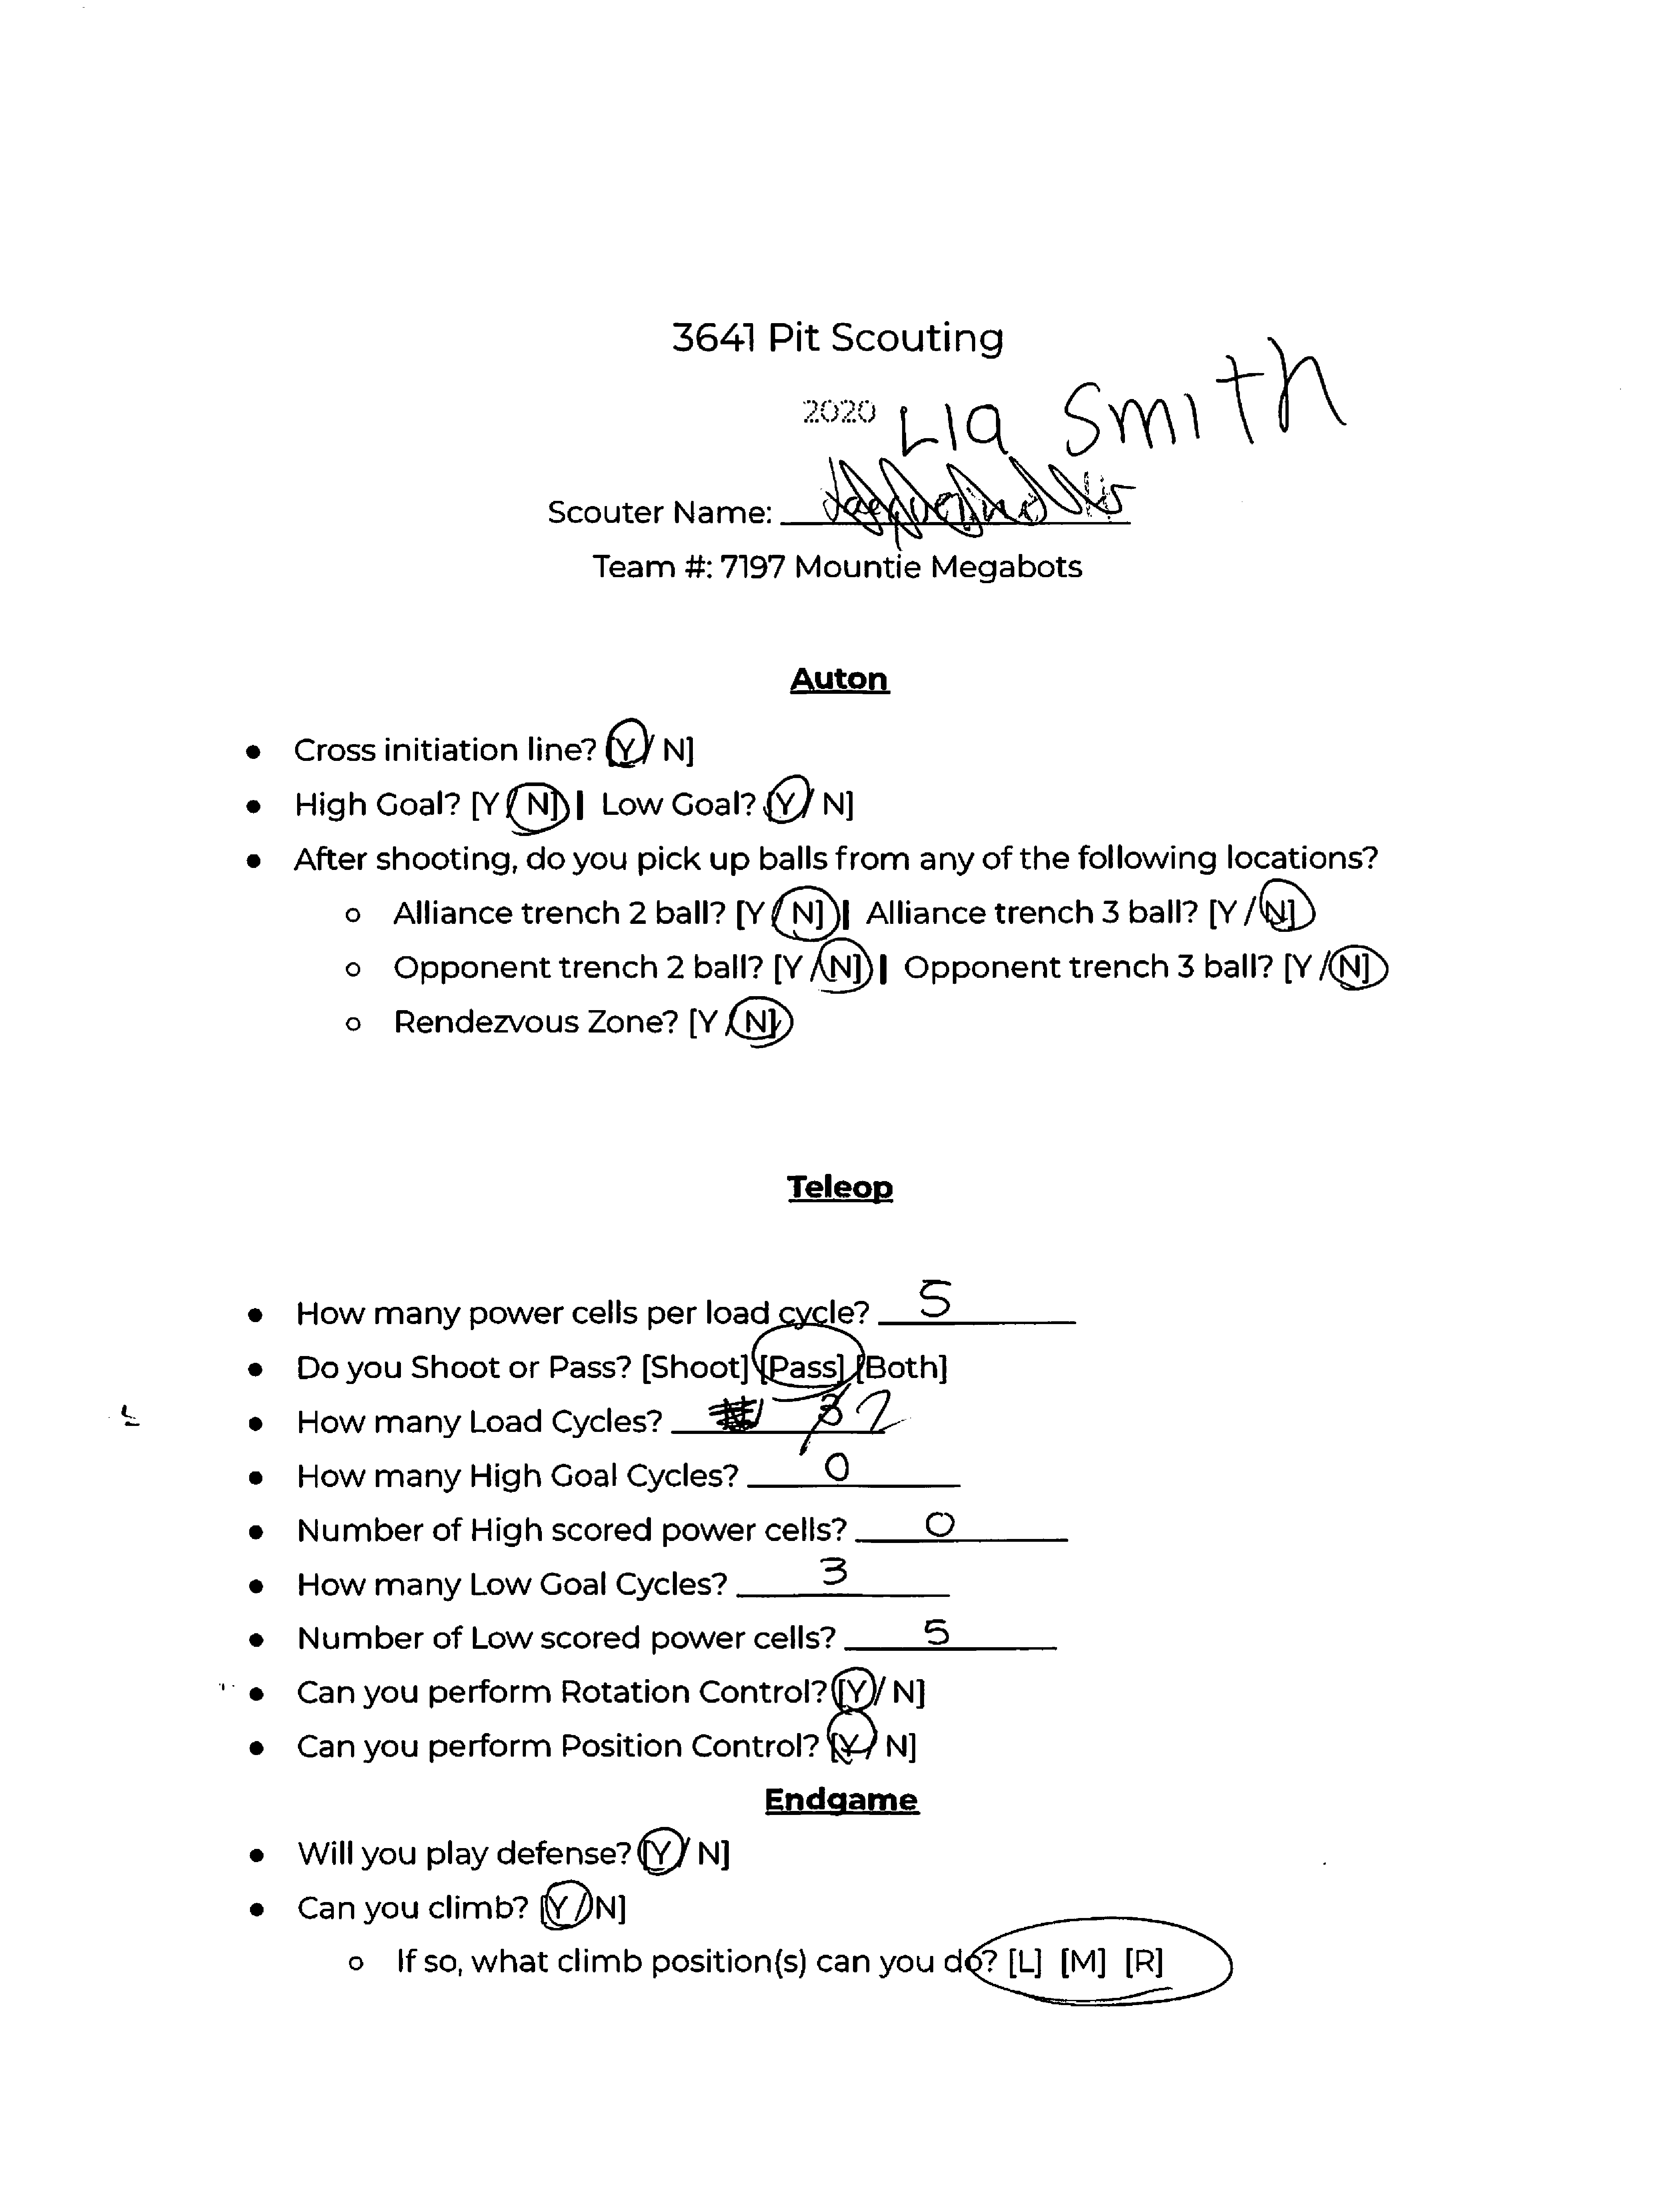 3641 Pit Scouting
2020 Lia Smith
Scouter Name:
Team #: 7197 Mountie Megabots
Auton
● Cross initiation line? [Y / N]
● High Goal? [Y / N] | Low Goal? [Y / N]
● After shooting, do you pick up balls from any of the following locations?
○ Alliance trench 2 ball? [Y / N] | Alliance trench 3 ball? [Y / N]
○ Opponent trench 2 ball? [Y / N] | Opponent trench 3 ball? [Y / N]
○ Rendezvous Zone? [Y / N]
Teleop
● How many power cells per load cycle? 5
● Do you Shoot or Pass? [Shoot] [Pass] [Both]
● How many Load Cycles? 3 2
● How many High Goal Cycles? 0
● Number of High scored power cells? 0
● How many Low Goal Cycles? 3
● Number of Low scored power cells? 5
● Can you perform Rotation Control? [Y / N]
● Can you perform Position Control? [Y / N]
Endgame
● Will you play defense? [Y / N]
● Can you climb? [Y / N]
○ If so, what climb position(s) can you do? [L] [M] [R]